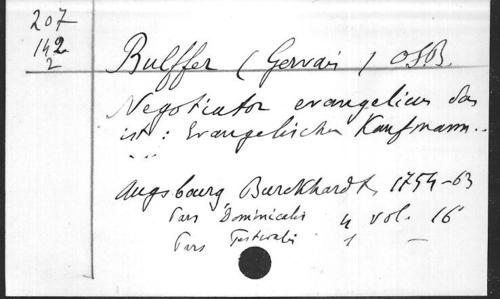 207
142
2
Bulffer (Gervais) O.S.B.
Negotiator evangelicus das
ist: Evangelischer Kaufmann..
Augsbourg Burckhardt, 1754-63
Pars Dominicalis 4 vol. 16
Pars Festivalis 1 —